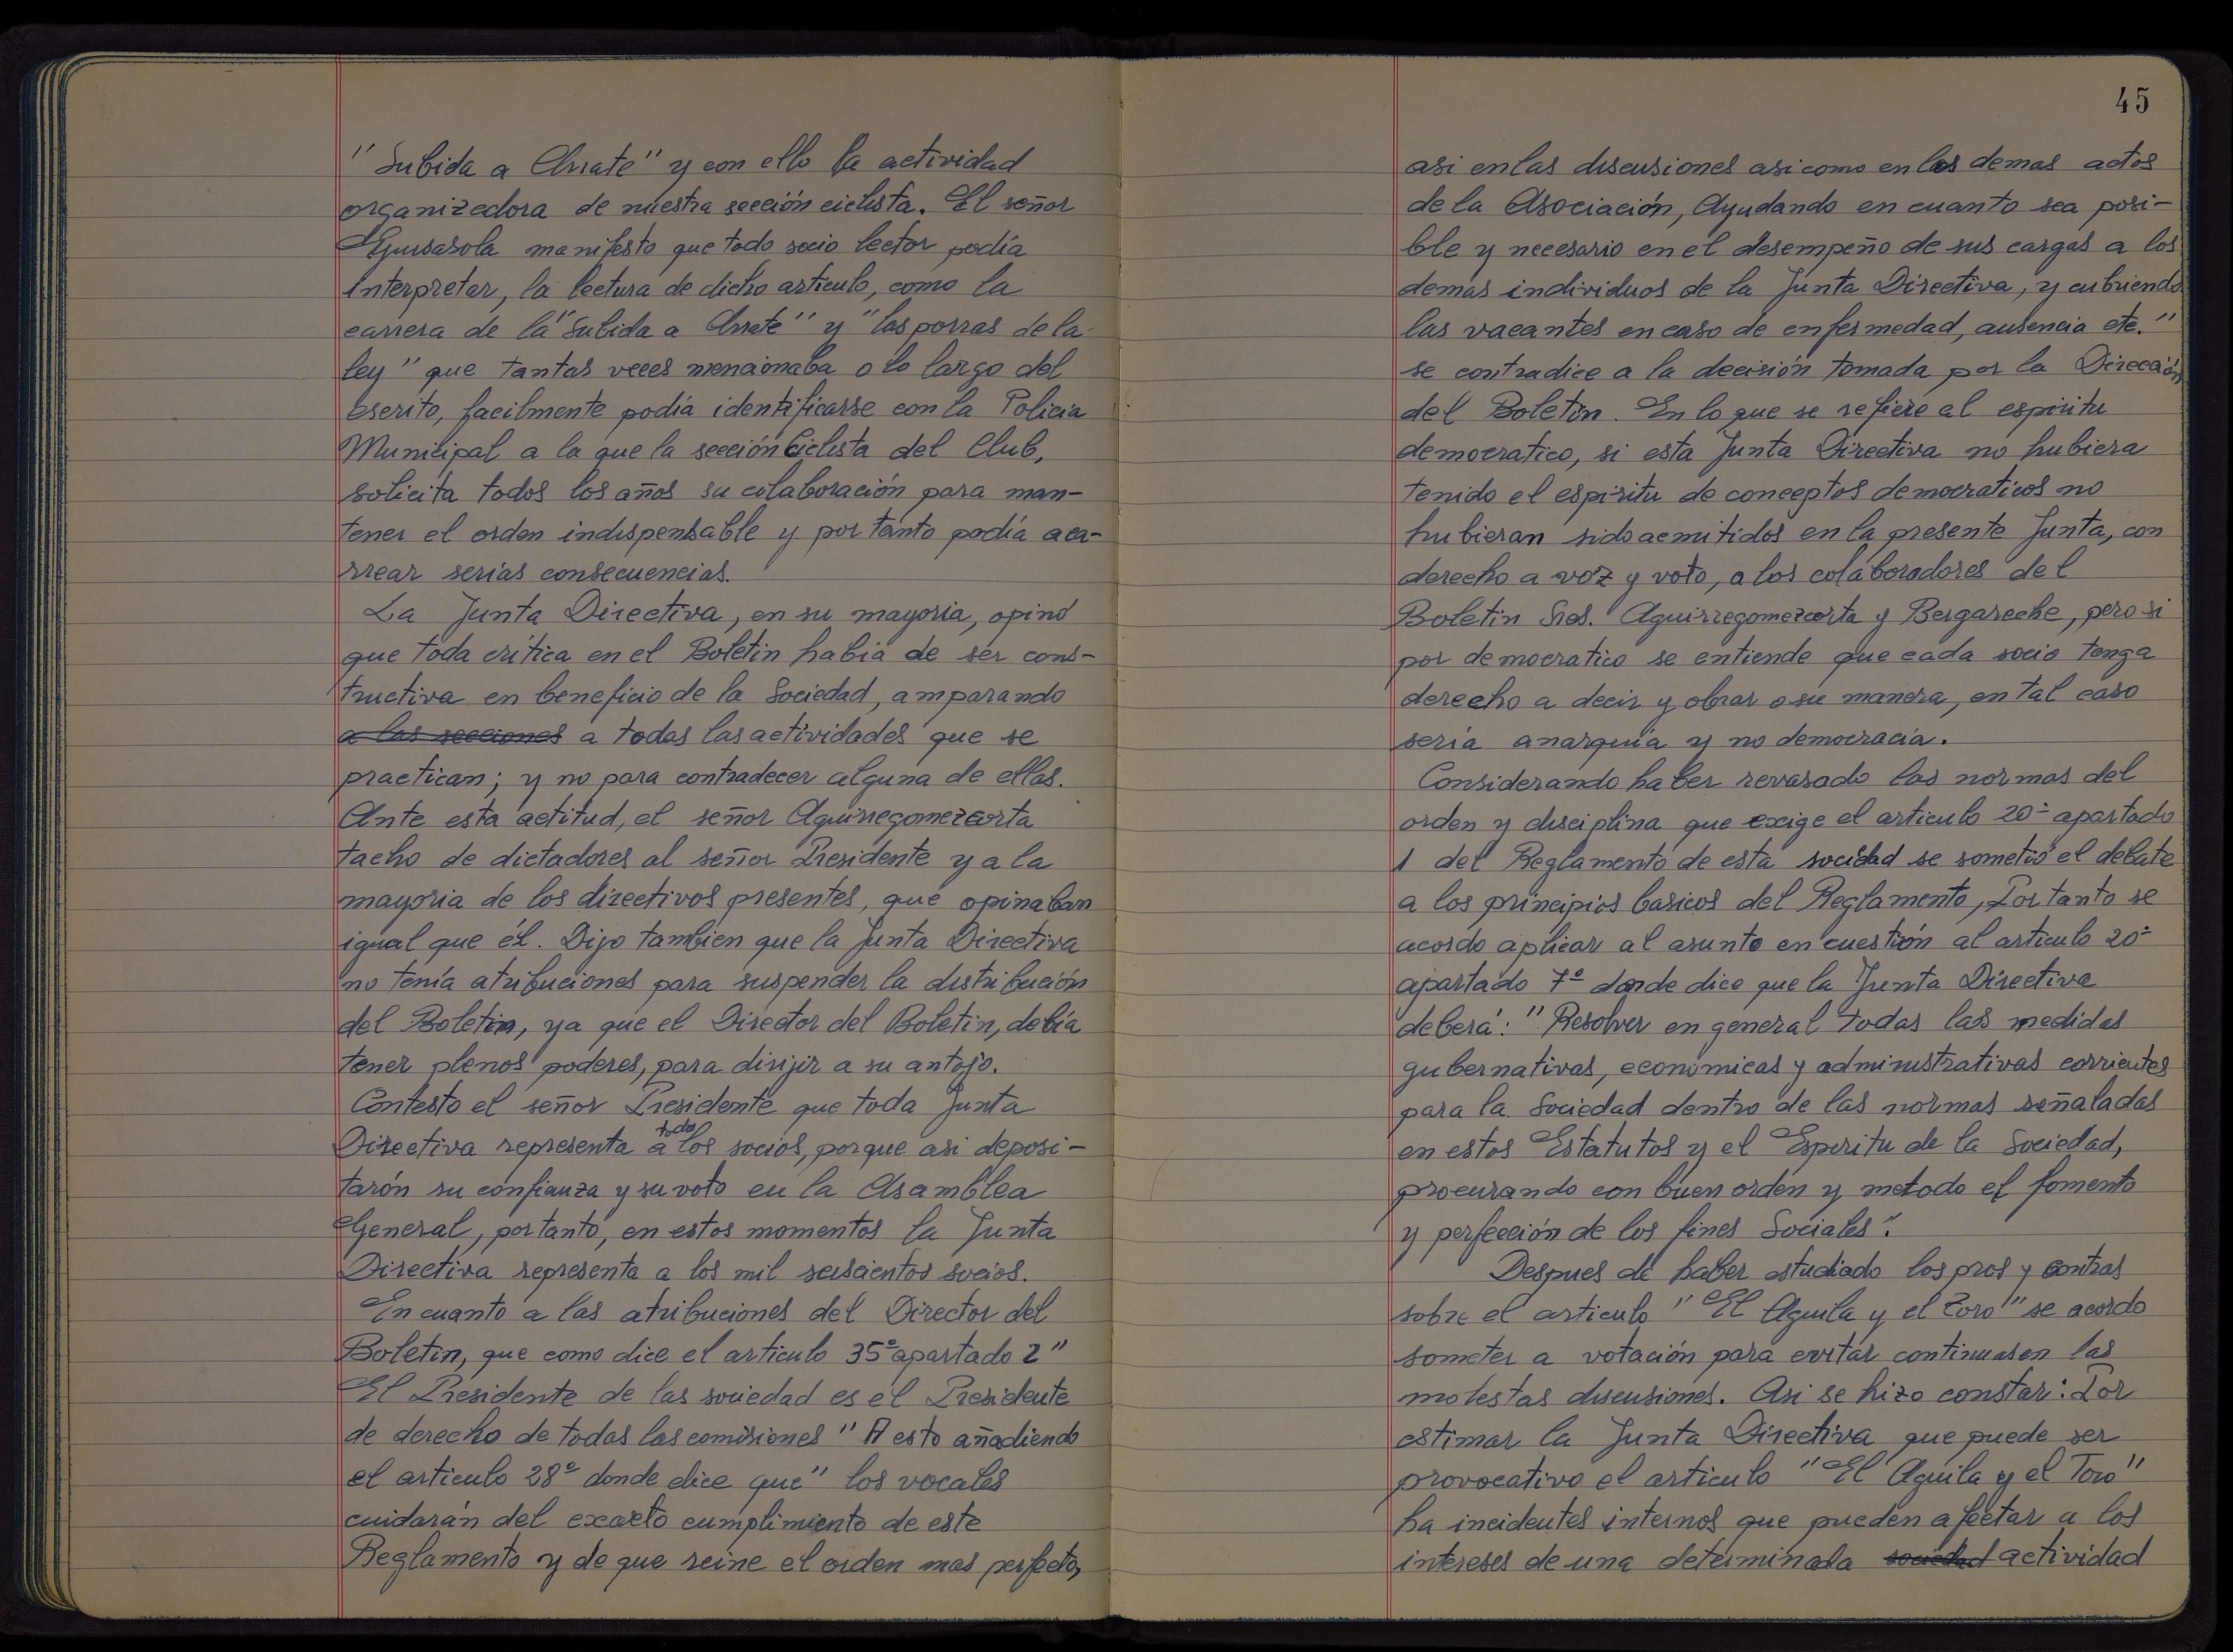 "Subida a Arrate" y con ello la actividad
organizedora de nuestra sección ciclista. El señor
Eguisasola manifesto que todo socio lector podía
interpretar, la lectura de dicho articulo, como la
carrera de la "Subida a Arrate" y "las porras de la
ley" que tantas veces mencionaba o lo largo del
escrito, facilmente podía identificarse con la Policia
Municipal a la que la sección Ciclista del Club,
solicita todos los años su colaboración para man-
tener el orden indispensable y por tanto podía aca-
rrear serias consecuencias.
La Junta Directiva, en su mayoria, opinó
que toda critica en el Boletin había de ser cons-
tructiva en beneficio de la Sociedad, amparando
a las secciones a todas las actividades que se
practican; y no para contradecer alguna de ellas.
Ante esta actitud, el señor Aguirregomezcorta
tacho de dictadores al señor Presidente y a la
mayoria de los directivos presentes, que opinaban
igual que él. Dijo tambien que la Junta Directiva
no tenía atribuciones para suspender la distribución
del Boletin, ya que el Director del Boletin, debía
tener plenos poderes, para dirijir a su antojo.
Contesto el señor Presidente que toda Junta
Directiva representa a todo los socios, porque asi deposi-
tarón su confianza y su voto en la Asamblea
General, por tanto, en estos momentos la Junta
Directiva representa a los mil seiscientos socios.
En cuanto a las atribuciones del Director del
Boletin, que como dice el articulo 35º apartado 2"
El Presidente de las sociedad es el Presidente
de derecho de todas las comisiones" A esto añadiendo
el articulo 28º donde dice que "los vocales
cuidarán del exacto cumplimiento de este
Reglamento y de que reine el orden mas perfecto,
45
asi en las discusiones asi como en los demas actos
de la Asociación, Ayudando en cuanto sea posi-
ble y necesario en el desempeño de sus cargas a los
demas individuos de la Junta Directiva, y cubriendo
las vacantes en caso de enfermedad, ausencia etc."
se contradice a la decisión tomada por la Dirección
del Boletin. En lo que se refiere al espiritu
democratico, si esta Junta Directiva no hubiera
tenido el espiritu de conceptos democraticos no
hubieran sido aemitidos en la presente Junta, con
derecho a voz y voto, a los colaboradores del
Boletin Sres. Aguirregomezcorta y Bergareche, pero si
por democratico se entiende que cada socio tenga
derecho a decir y obrar a su manera, en tal caso
sería anarquía y no democracia.
Considerando haber revasado las normas del
orden y disciplina que exige el articulo 20º apartado
1 del Reglamento de esta socidad se sometió el debate
a los principios basicos del Reglamento, Por tanto se
acordo aplicar al asunto en cuestión al articulo 20º
apartado 7º donde dice que la Junta Directiva
deberá: "Resolver en general todas las medidas
gubernativas, económicas y administrativas corrientes
para la Sociedad dentro de las normas señaladas
en estos Estatutos y el Esperitu de la Sociedad,
procurando con buen orden y metodo el fomento
y perfección de los fines Sociales".
Despues de haber estudiado los pros y contras
sobre el articulo "El Aguila y el Toro" se acordo
someter a votación para evitar continuasen las
molestas discusiones. Asi se hizo constar: Por
estimar la Junta Directiva que puede ser
provocativo el articulo "El Aguila y el Toro"
ha incidentes internos que pueden afectar a los
intereses de una determinada sociedad actividad